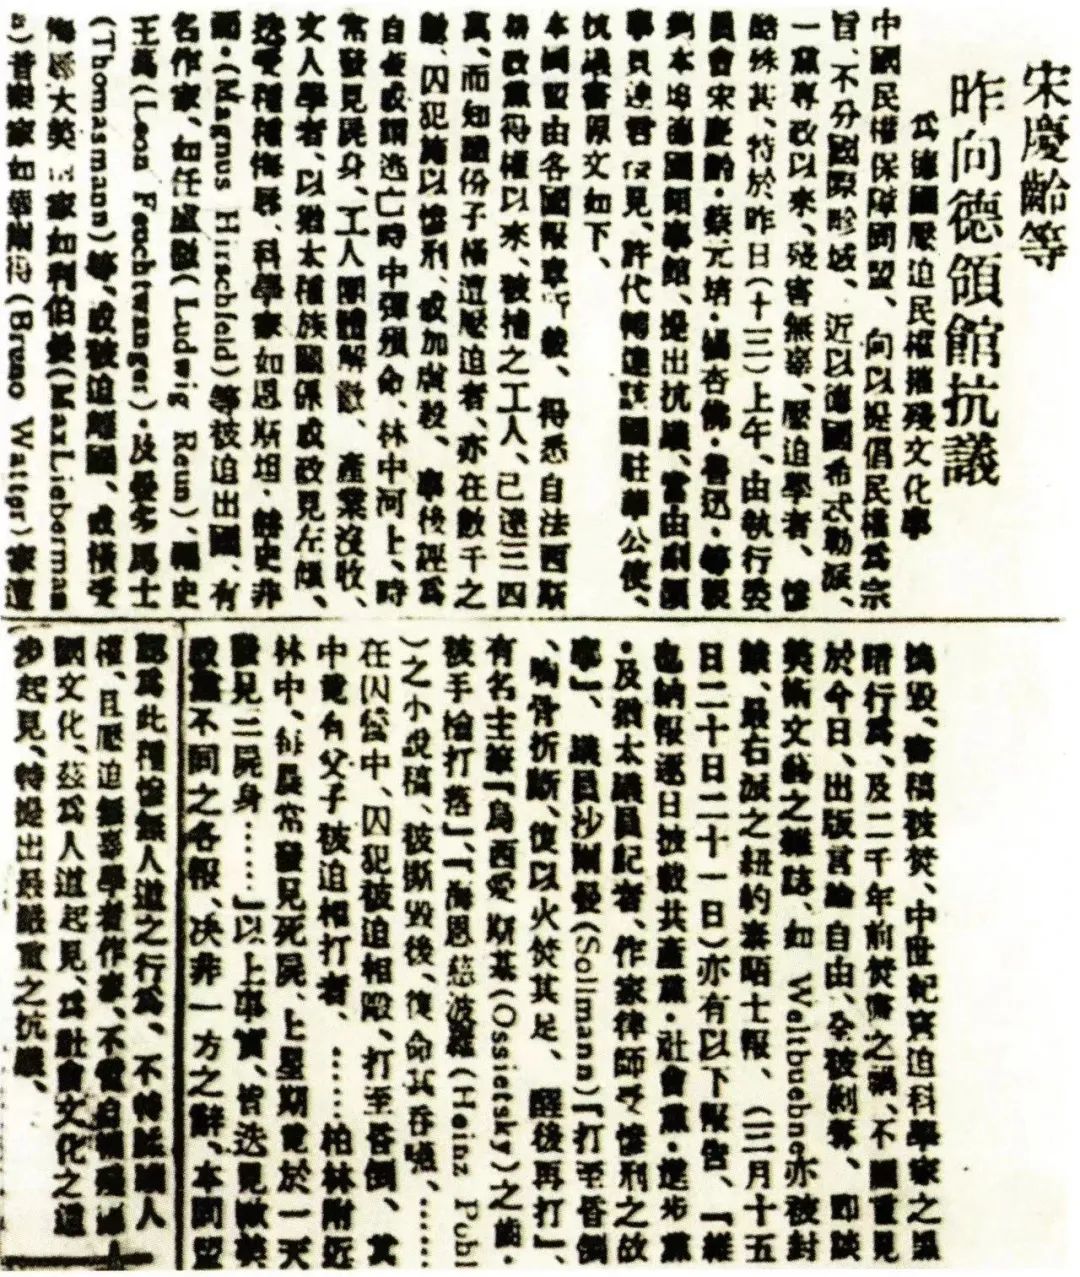 宋慶齡等
昨向德領館抗議
爲德國壓迫民權摧殘文化事
中國民權保障同盟、向以提倡民權爲宗
旨、不分國際畛域、近以德國希忒勒派、
一黨專政以來、殘害無辜、壓迫學者、慘
酷殊甚、特於昨日(十三)上午、由執行委
員會宋慶齡·蔡元培·楊杏佛·魯迅·等親
到本埠德國領事館、提出抗議、當由副領
事貝連君接見、許代轉達該國駐華公使、
抗議書原文如下、
本同盟由各國報章所載、得悉自法西斯
蒂政黨得權以來、被捕之工人、已達三四
萬、而知識份子橫遭壓迫者、亦在數千之
數、囚犯施以慘刑、或加虐殺、事後誣爲
自盡或謂逃亡時中彈殞命、林中河上、時
常發見屍身、工人團體解散、產業沒收、
文人學者、以猶太種族關係或政見左傾、
迭受種種侮辱、科學家如恩斯坦·赫史非
爾·(Magnus Hirschfeld)等被迫出國、有
名作家、如任盧徵(Ludwig Renn)、關史
王葛(Leon Feuchtwanger)·及曼多馬士
(Thomasmann)等、或被迫離國、或橫受
侮辱大美術家如利伯曼(MaxLieberman
n)音樂家如華爾特(Bruno Walter)家遭
搗毀、書稿被焚、中世紀窘迫科學家之黑
暗行爲、及二千年前焚書之禍、不圖重見
於今日、出版言論自由、全被剝奪、即談
美術文藝之雜誌、如 Weltbuehne亦被封
鎖、最右派之紐約泰晤士報、(三月十五
日二十日二十一日)亦有以下報告、『維
也納報逐日披載共產黨·社會黨·進步黨
·及猶太議員記者、作家律師受慘刑之故
事』、議員沙爾曼(Sollmann)『打至昏倒
、胸骨折斷、復以火焚其足、醒後再打』、
有名主筆『烏西愛斯基(Ossietsky)之齒·
被手槍打落』、『海恩慈波爾(Heinz Pohl
)之小說稿、被撕毀後、復命其吞嚥、……
在囚營中、囚犯被迫相毆、打至昏倒、其
中竟有父子被迫相打者、……柏林附近
林中、每晨常發見死屍、上星期竟於一天
發見三屍身……』以上事實、皆迭見歐美
政黨不同之各報、决非一方之辭、本同盟
認爲此種慘無人道之行爲、不特蹂躪人
權、且壓迫無辜學者作家、不啻自摧殘德
國文化、茲爲人道起見、爲社會文化之進
步起見、特提出最嚴重之抗議、